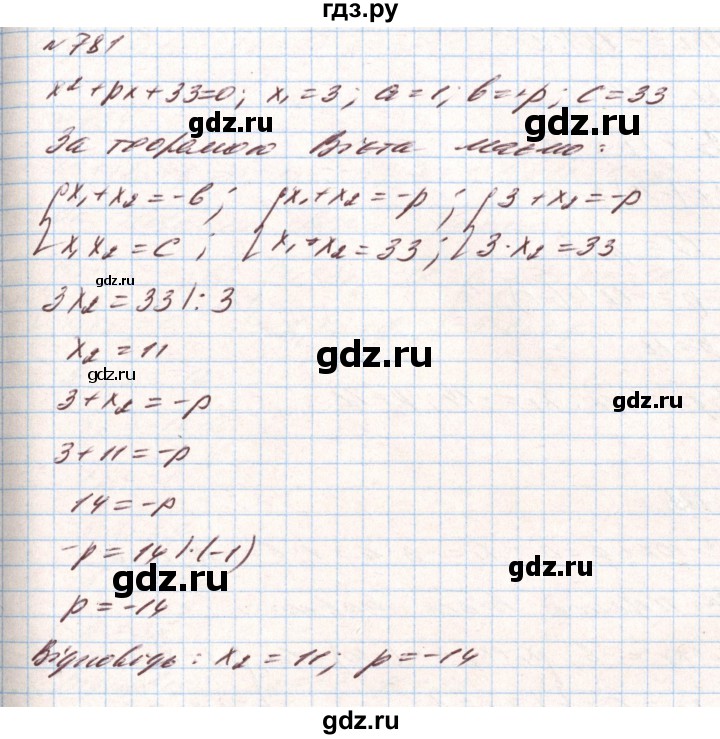 гдз.ру
№781
x²+px+33=0; x₁=3; a=1; b=p; c=33
gdz.ru
За теоремою Вієта маємо:
{x₁+x₂=-b; {x₁+x₂=-p; {3+x₂=-p
{x₁x₂=c; {x₁·x₂=33; {3·x₂=33
gdz.ru
3x₂=33|:3
gdz.ru
x₂=11
gdz.ru
3+x₂=-p
gdz.ru
3+11=-p
14=-p
-p=14|·(-1)
gdz.ru
gdz.ru
p=-14
Відповідь: x₂=11; p=-14
gdz.ru